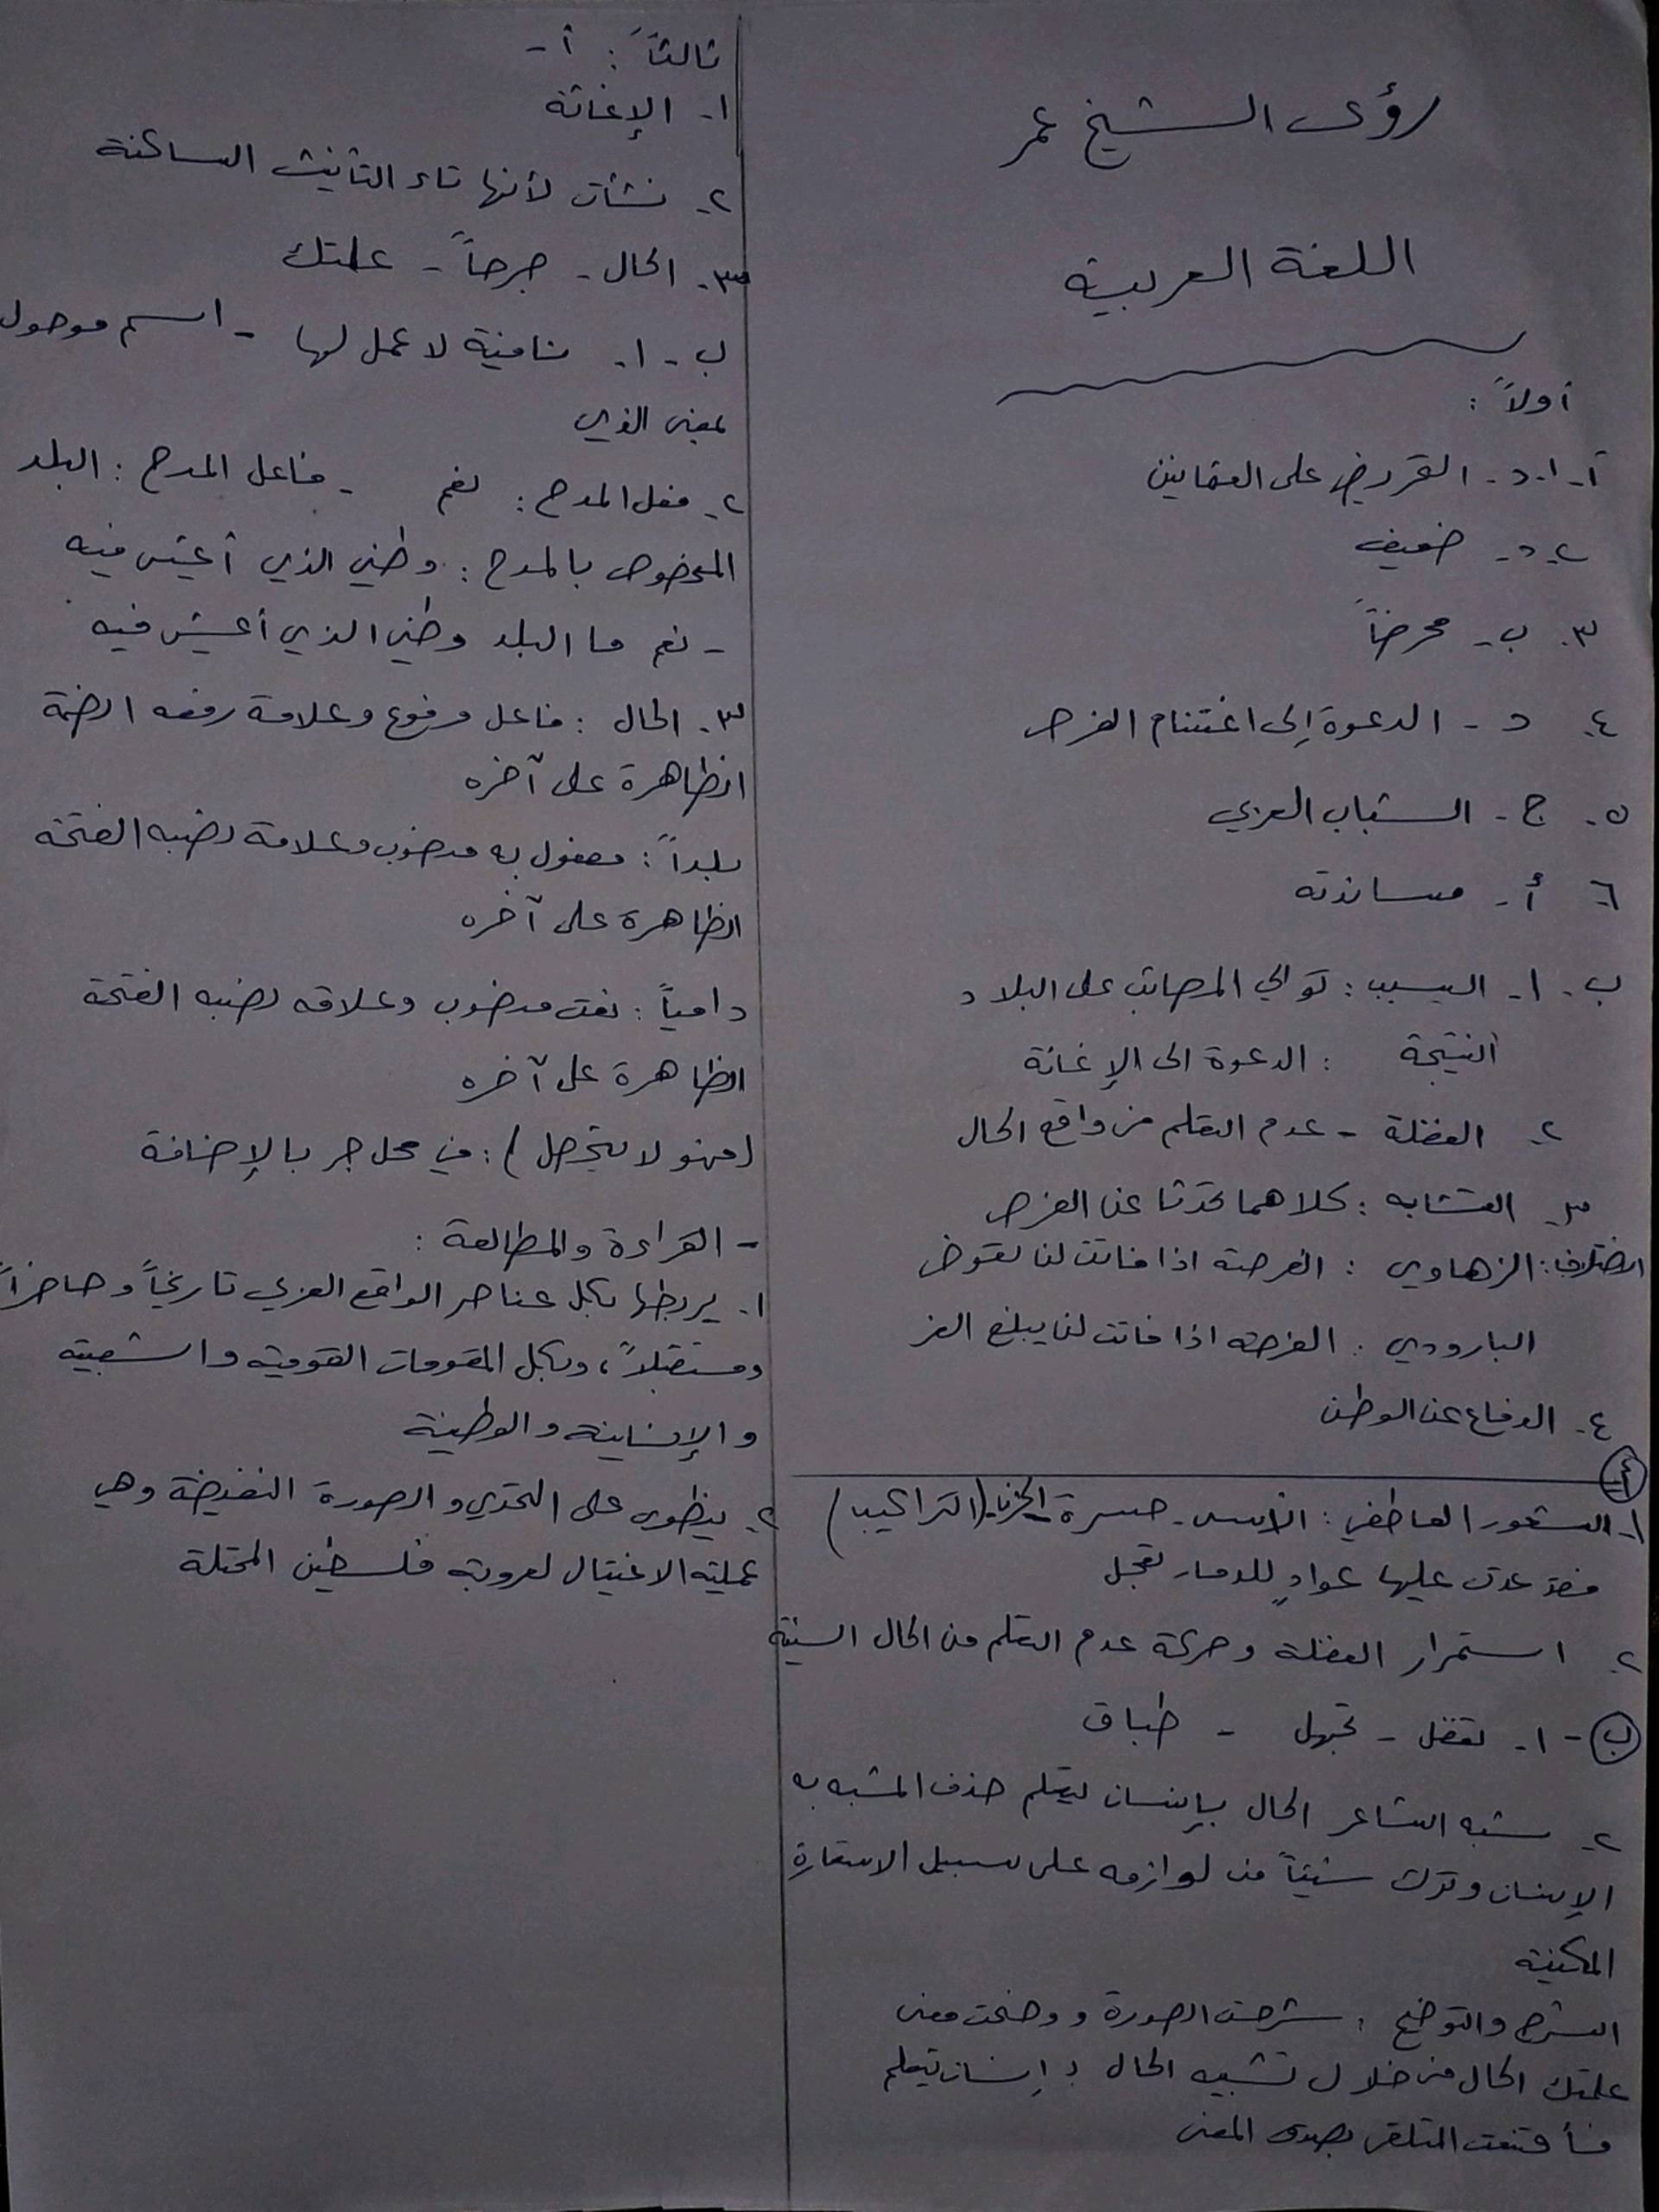 رؤى الشيخ عمر
اللغة العربية
أولاً :
أ - ١ - د - التحريض على العثمانيين
٢ - د - ضعيف
٣ - ب - محرضاً
٤ - د - الدعوة إلى اغتنام الفرص
٥ - ج - الشباب العربي
٦ - أ - مساندته
ب - ١ - السبب : توالي المصائب على البلاد
النتيجة : الدعوة الى الإغاثة
٢ - الغفلة - عدم التعلم من واقع الحال
٣ - التشابه : كلاهما تحدثا عن الفرص
الاختلاف : الزهاوي : الفرصة اذا فاتت لن تعوض
البارودي : الفرصة اذا فاتت لن يبلغ العز
٤ - الدفاع عن الوطن
١ - الشعور العاطفي : الأسى - حسرة - الحزن (التراكيب)
فقد عدت عليها عوادٍ للدمار تعجل
٢ - استمرار الغفلة وحركة عدم التعلم من الحال السيئة
ب - ١ - تغفل - تجهل - طباق
٢ - شبه الشاعر الحال بإنسان يعلم حذف المشبه به
الإنسان وترك شيئاً من لوازمه على سبيل الاستعارة
المكنية
الشرح والتوضيح : شرحت الصورة ووضحت معنى
علمتك الحال من خلال تشبيه الحال بإنسان يعلم
فأقنعت المتلقي بصدق المعنى
ثالثاً : أ -
١ - الإغاثة
٢ - نشأت لأنها تاء التأنيث الساكنة
٣ - الحال - جرحاً - علمتك
ب - ١ - نافية لا عمل لها - اسم موصول
بمعنى الذي
٢ - فعل المدح : نعم - فاعل المدح : البلد
المخصوص بالمدح : وطني الذي أعيش فيه
- نعم ما البلد وطني الذي أعيش فيه
٣ - الحال : فاعل مرفوع وعلامة رفعه الضمة
الظاهرة على آخره
بلداً : مفعول به منصوب وعلامة نصبه الفتحة
الظاهرة على آخره
دامياً : نعت منصوب وعلامة نصبه الفتحة
الظاهرة على آخره
: في محل جر بالإضافة
- القراءة والمطالعة :
١ - يربطها بكل عناصر الواقع العربي تاريخاً وحاضراً
ومستقبلاً ، وبكل المقومات القومية والشعبية
والإنسانية والوطنية
٢ - ينطوي على التحدي والصورة النقيضة وهي
عملية الاغتيال لعروبة فلسطين المحتلة